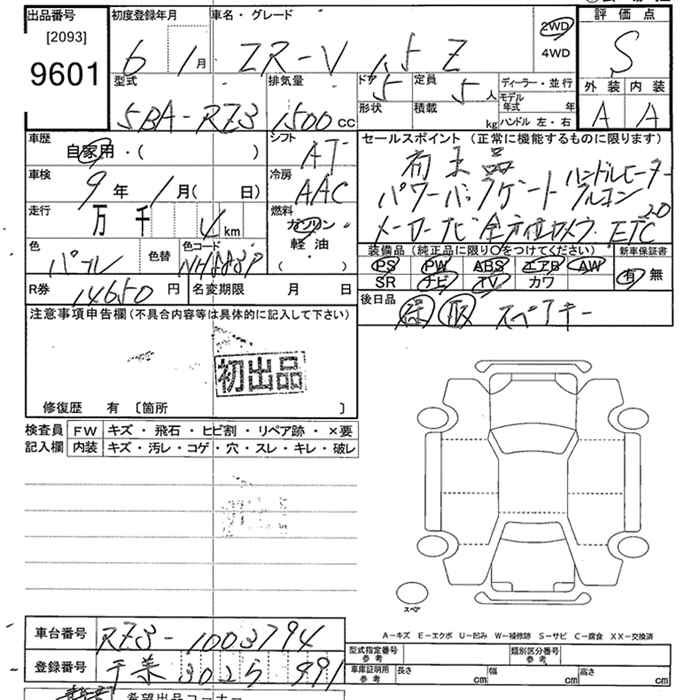 出品番号 初度登録年月 車名・グレード 評価点
[2093]
9601
6 1月 ZR-V 1.5 Z 2WD 4WD S
型式 排気量 ドア 定員 ディーラー・並行 外装 内装
5BA-RZ3 1500 CC 5 5人 モデル年式 年 A A
形状 積載 kg ハンドル 左・右
車歴 シフト セールスポイント(正常に機能するものに限ります)
自家用・( ) AT
車検 冷房 パワーバックゲート ハンドルヒーター
9年 1月( 日) AAC
走行 燃料 メーカーナビ 全方位カメラ ETC2.0
万 千 4 km ガソリン
軽油
( )
色 色替 色コード 装備品(純正品に限り○をつけてください) 新車保証書
パール NH883P PS PW ABS エアB AW 有 無
SR ナビ TV カワ
R券 14650 円 名変期限 月 日 後日品 スペアキー
注意事項申告欄(不具合内容等は具体的に記入して下さい)
初出品
修復歴 有 〔箇所 〕
検査員 FW キズ・飛石・ヒビ割・リペア跡・×要
記入欄 内装 キズ・汚レ・コゲ・穴・スレ・キレ・破レ
スペア
車台番号 RZ3-1003794
A-キズ E-エクボ U-凹み W-補修跡 S-サビ C-腐食 XX-交換済
型式指定番号 参考 類別区分番号 参考
登録番号 千葉 302 5 991
車庫証明用 参考 長さ cm 幅 cm 高さ cm
希望出品コーナー